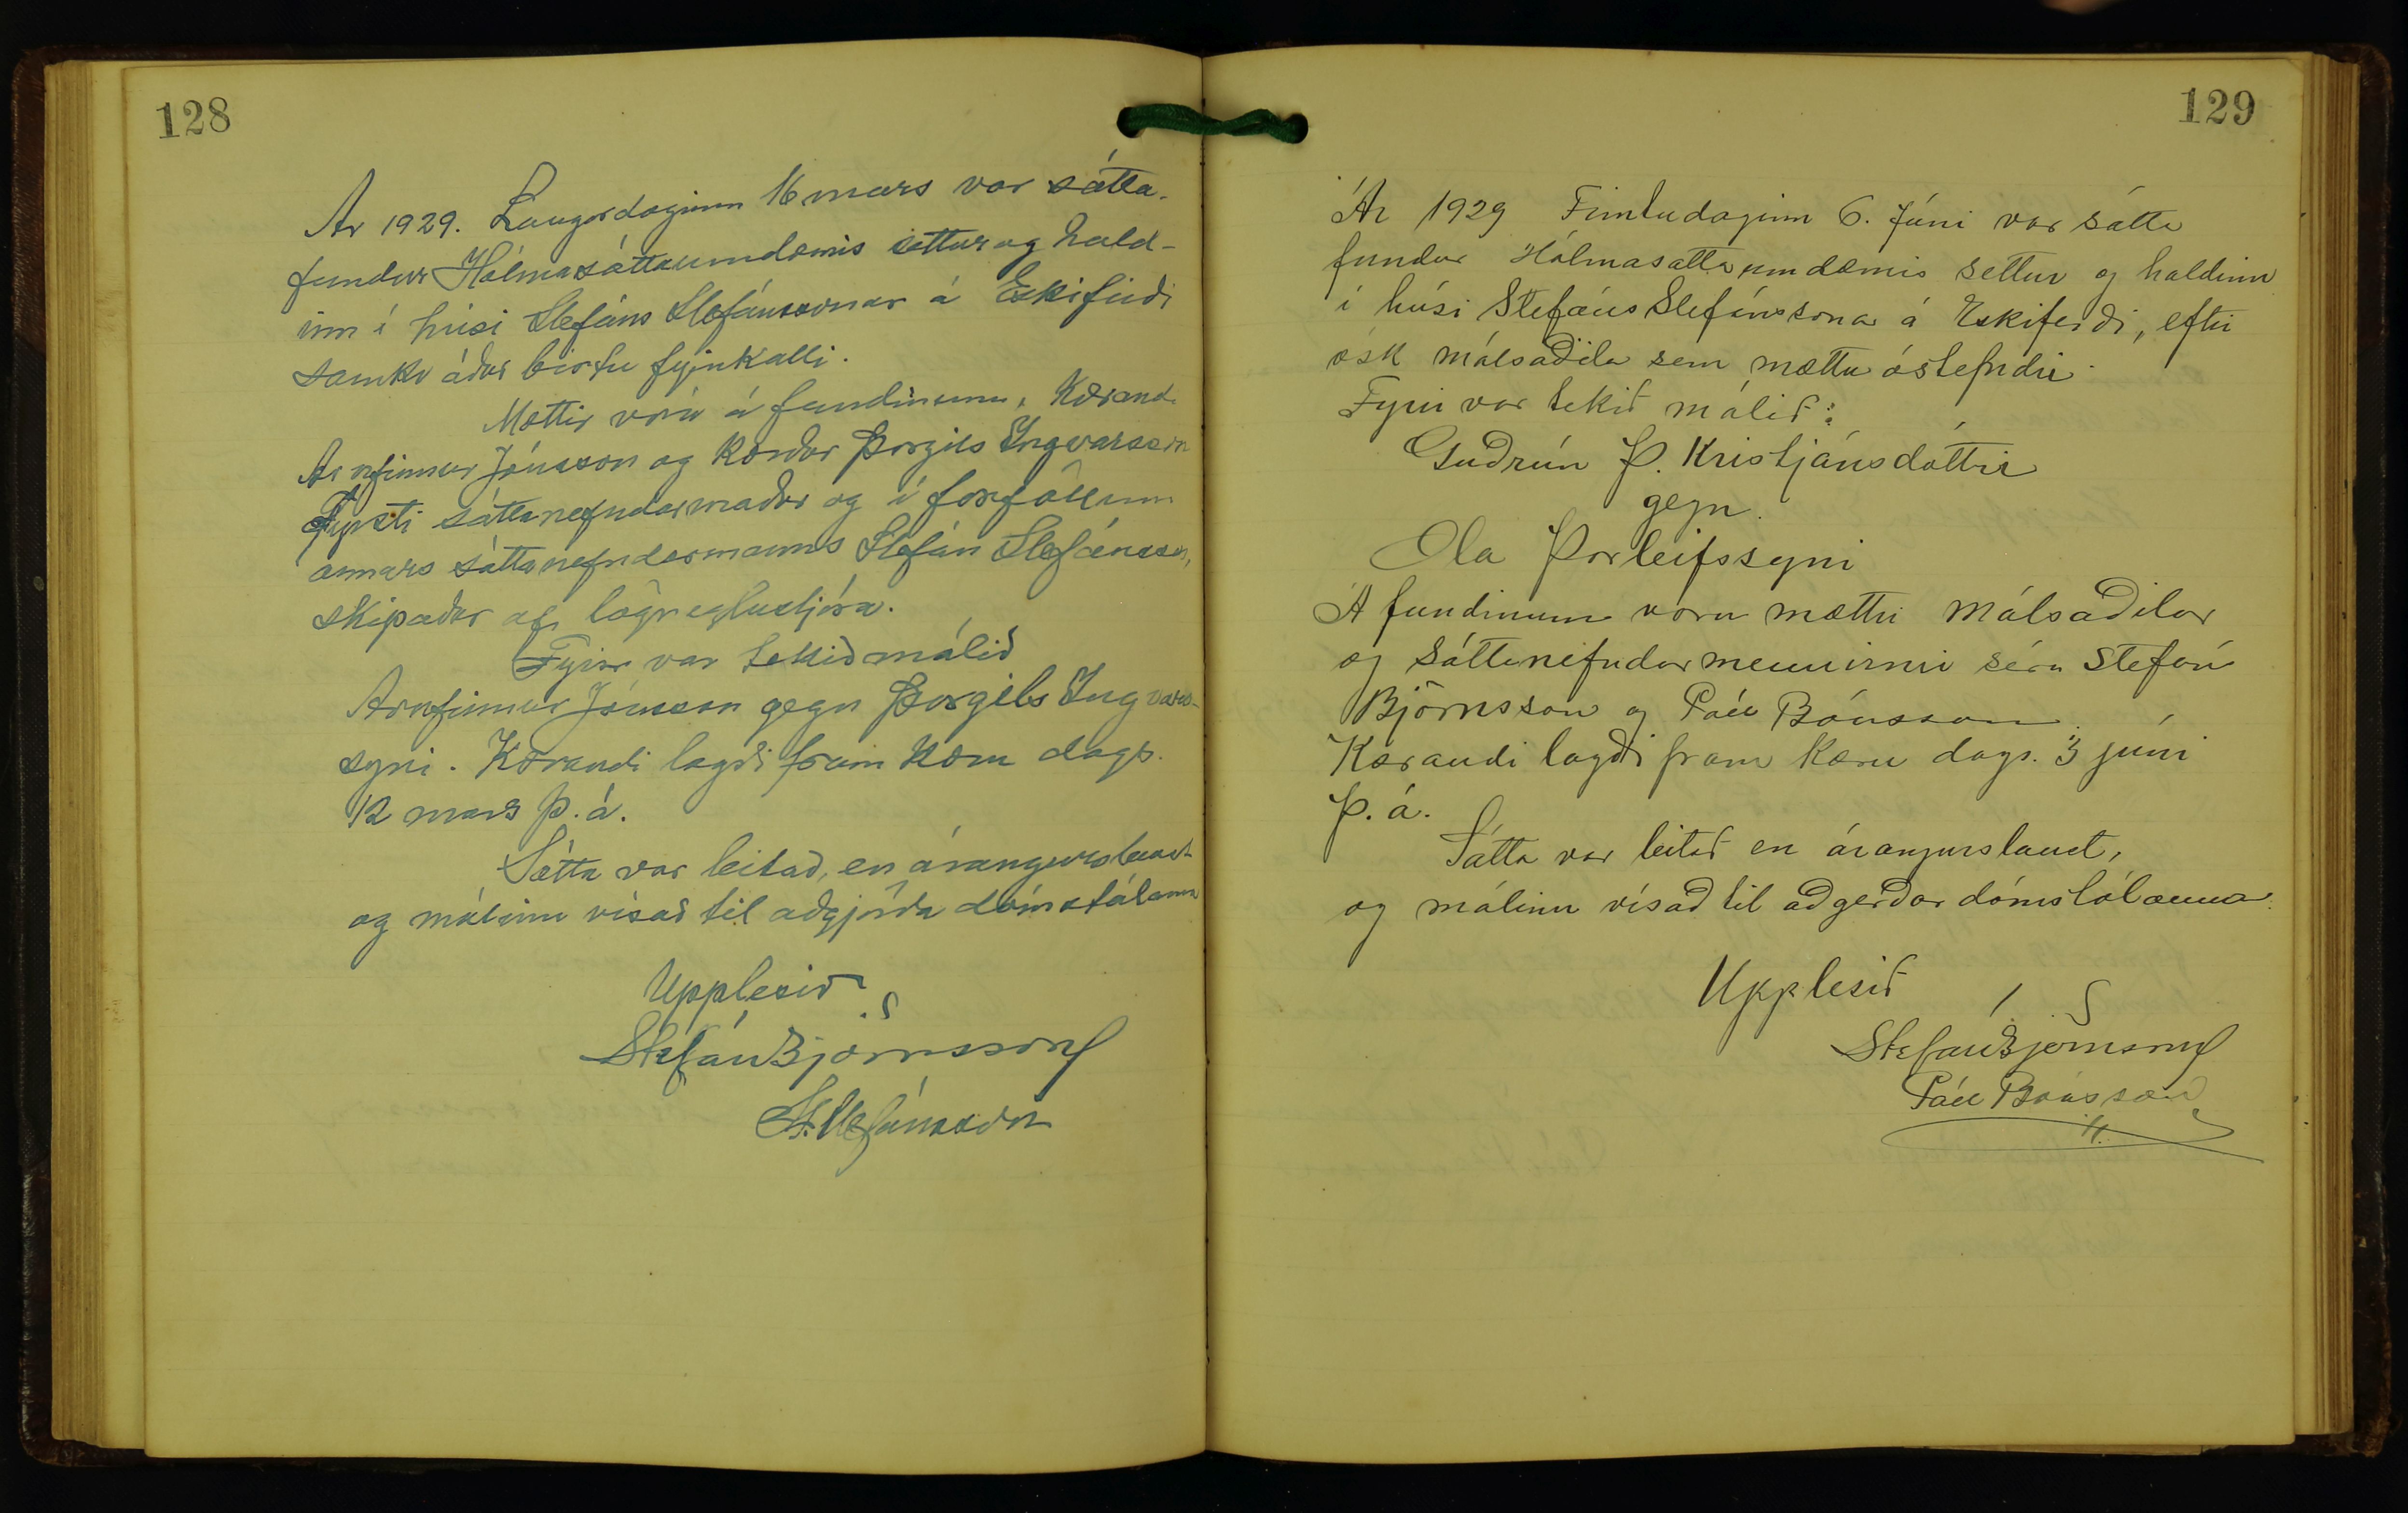 128
Ár 1929. Laugardaginn 16 mars var sátta-
fundur Hólmasáttaumdæmis settur og hald-
inn í húsi Stefáns Stefánssonar á Eskifirði
samkv áður birtu fyrirkalli.
Mættir vóru á fundinum, Kærandi
Arnfinnur Jónsson og Kærður Þorgils Ingvarsson
Fyrsti sáttanefndarmaður og í forföllum
annars sáttanefndarmanns Stefán Stefánsson,
skipaður af lögreglustjóra.
Fyrir var tekið málið
Arnfinnur Jónsson gegn Þorgils Ingvars-
syni. Kærandi lagði fram kæru dags.
12 mars þ.á.
Sátta var leitað, en árangurslaust
og málinu vísað til aðgjörða dómstólanna
Upplesið
Stefán Björnsson
St. Stefánsson
129
Ár 1929 Fimtudaginn 6. Júni var sátta
fundur Hólmasáttaumdæmis settur og haldinn
í húsi Stefáns Stefánssonar á Eskifirði, eftir
ósk málsaðila sem mættu óstefndir.
Fyrir var tekið málið:
Guðrún Þ. Kristjánsdóttir
gegn.
Óla Þorleifssyni
Á fundinum voru mættir málsaðilar
og sáttanefndarmennirnir séra Stefán
Björnsson og Páll Bóasson.
Kærandi lagði fram kæru dags. 3 júni
þ.á.
Sátta var leitað en árangurslaust,
og málinu vísað til aðgerðar dómstólanna.
Upplesið
Stefán Björnsson
Páll Bóasson